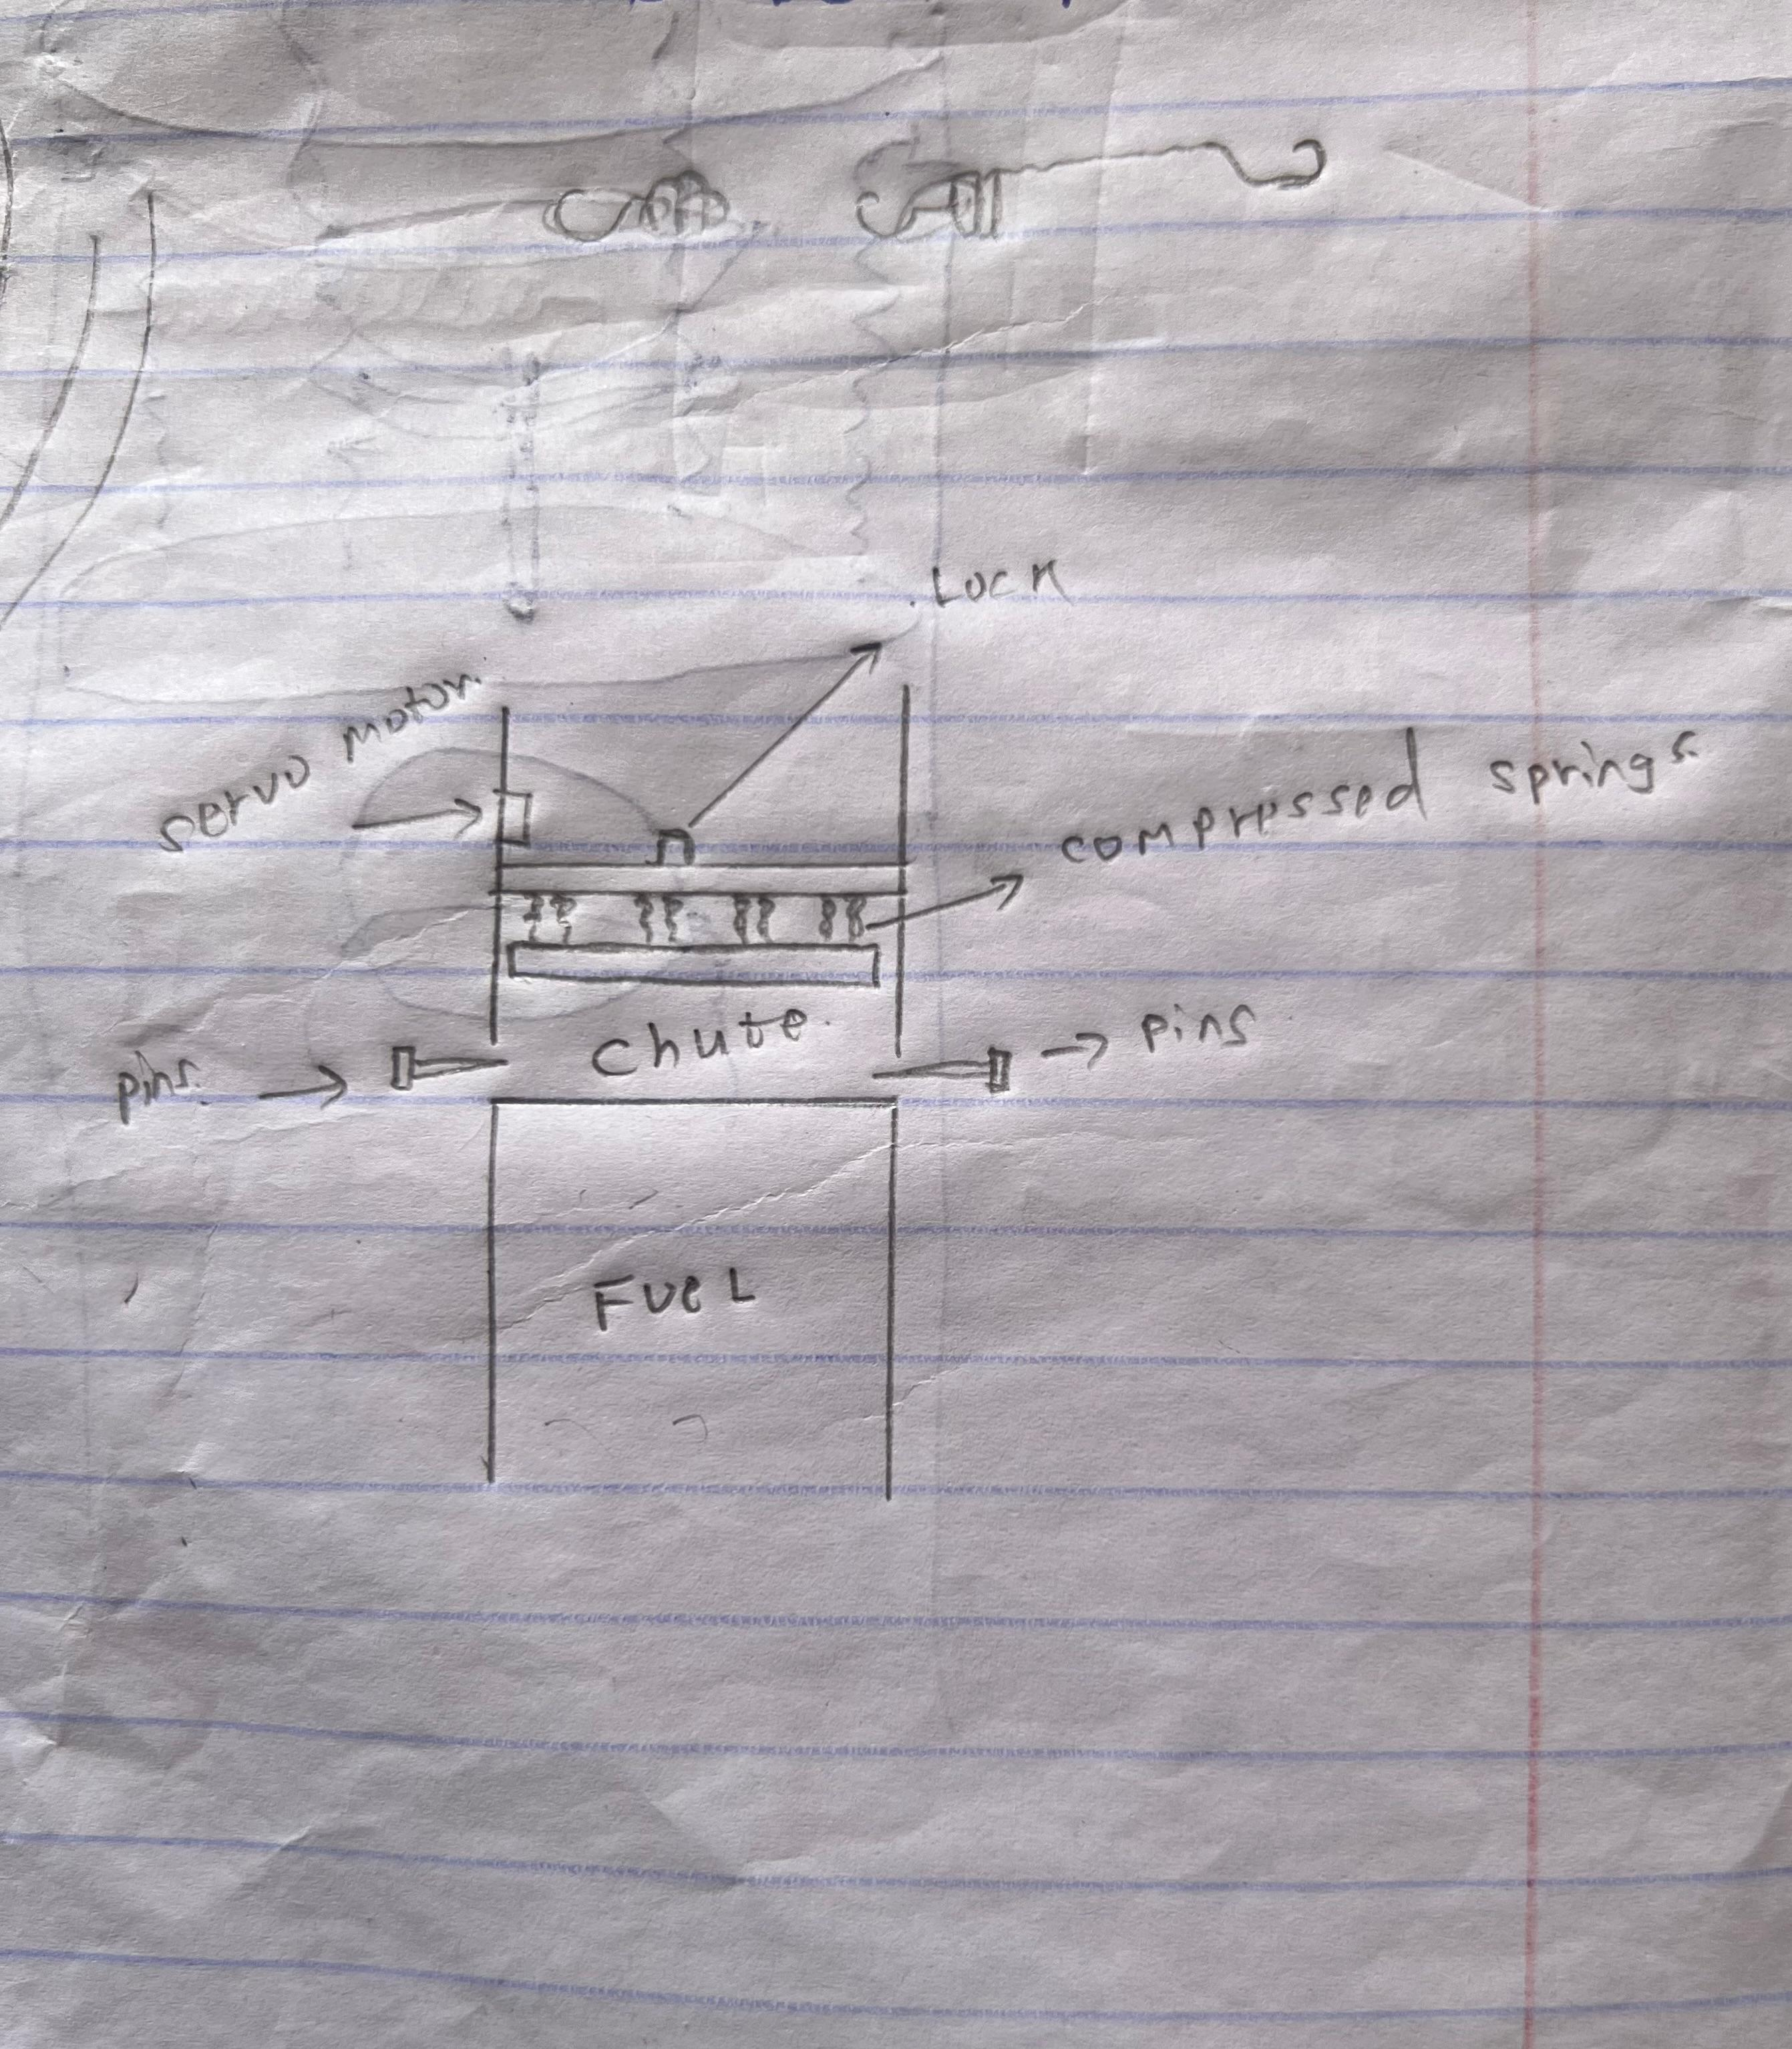 Lock
servo motor.
compressed springs.
chute.
pins.
pins
FUEL